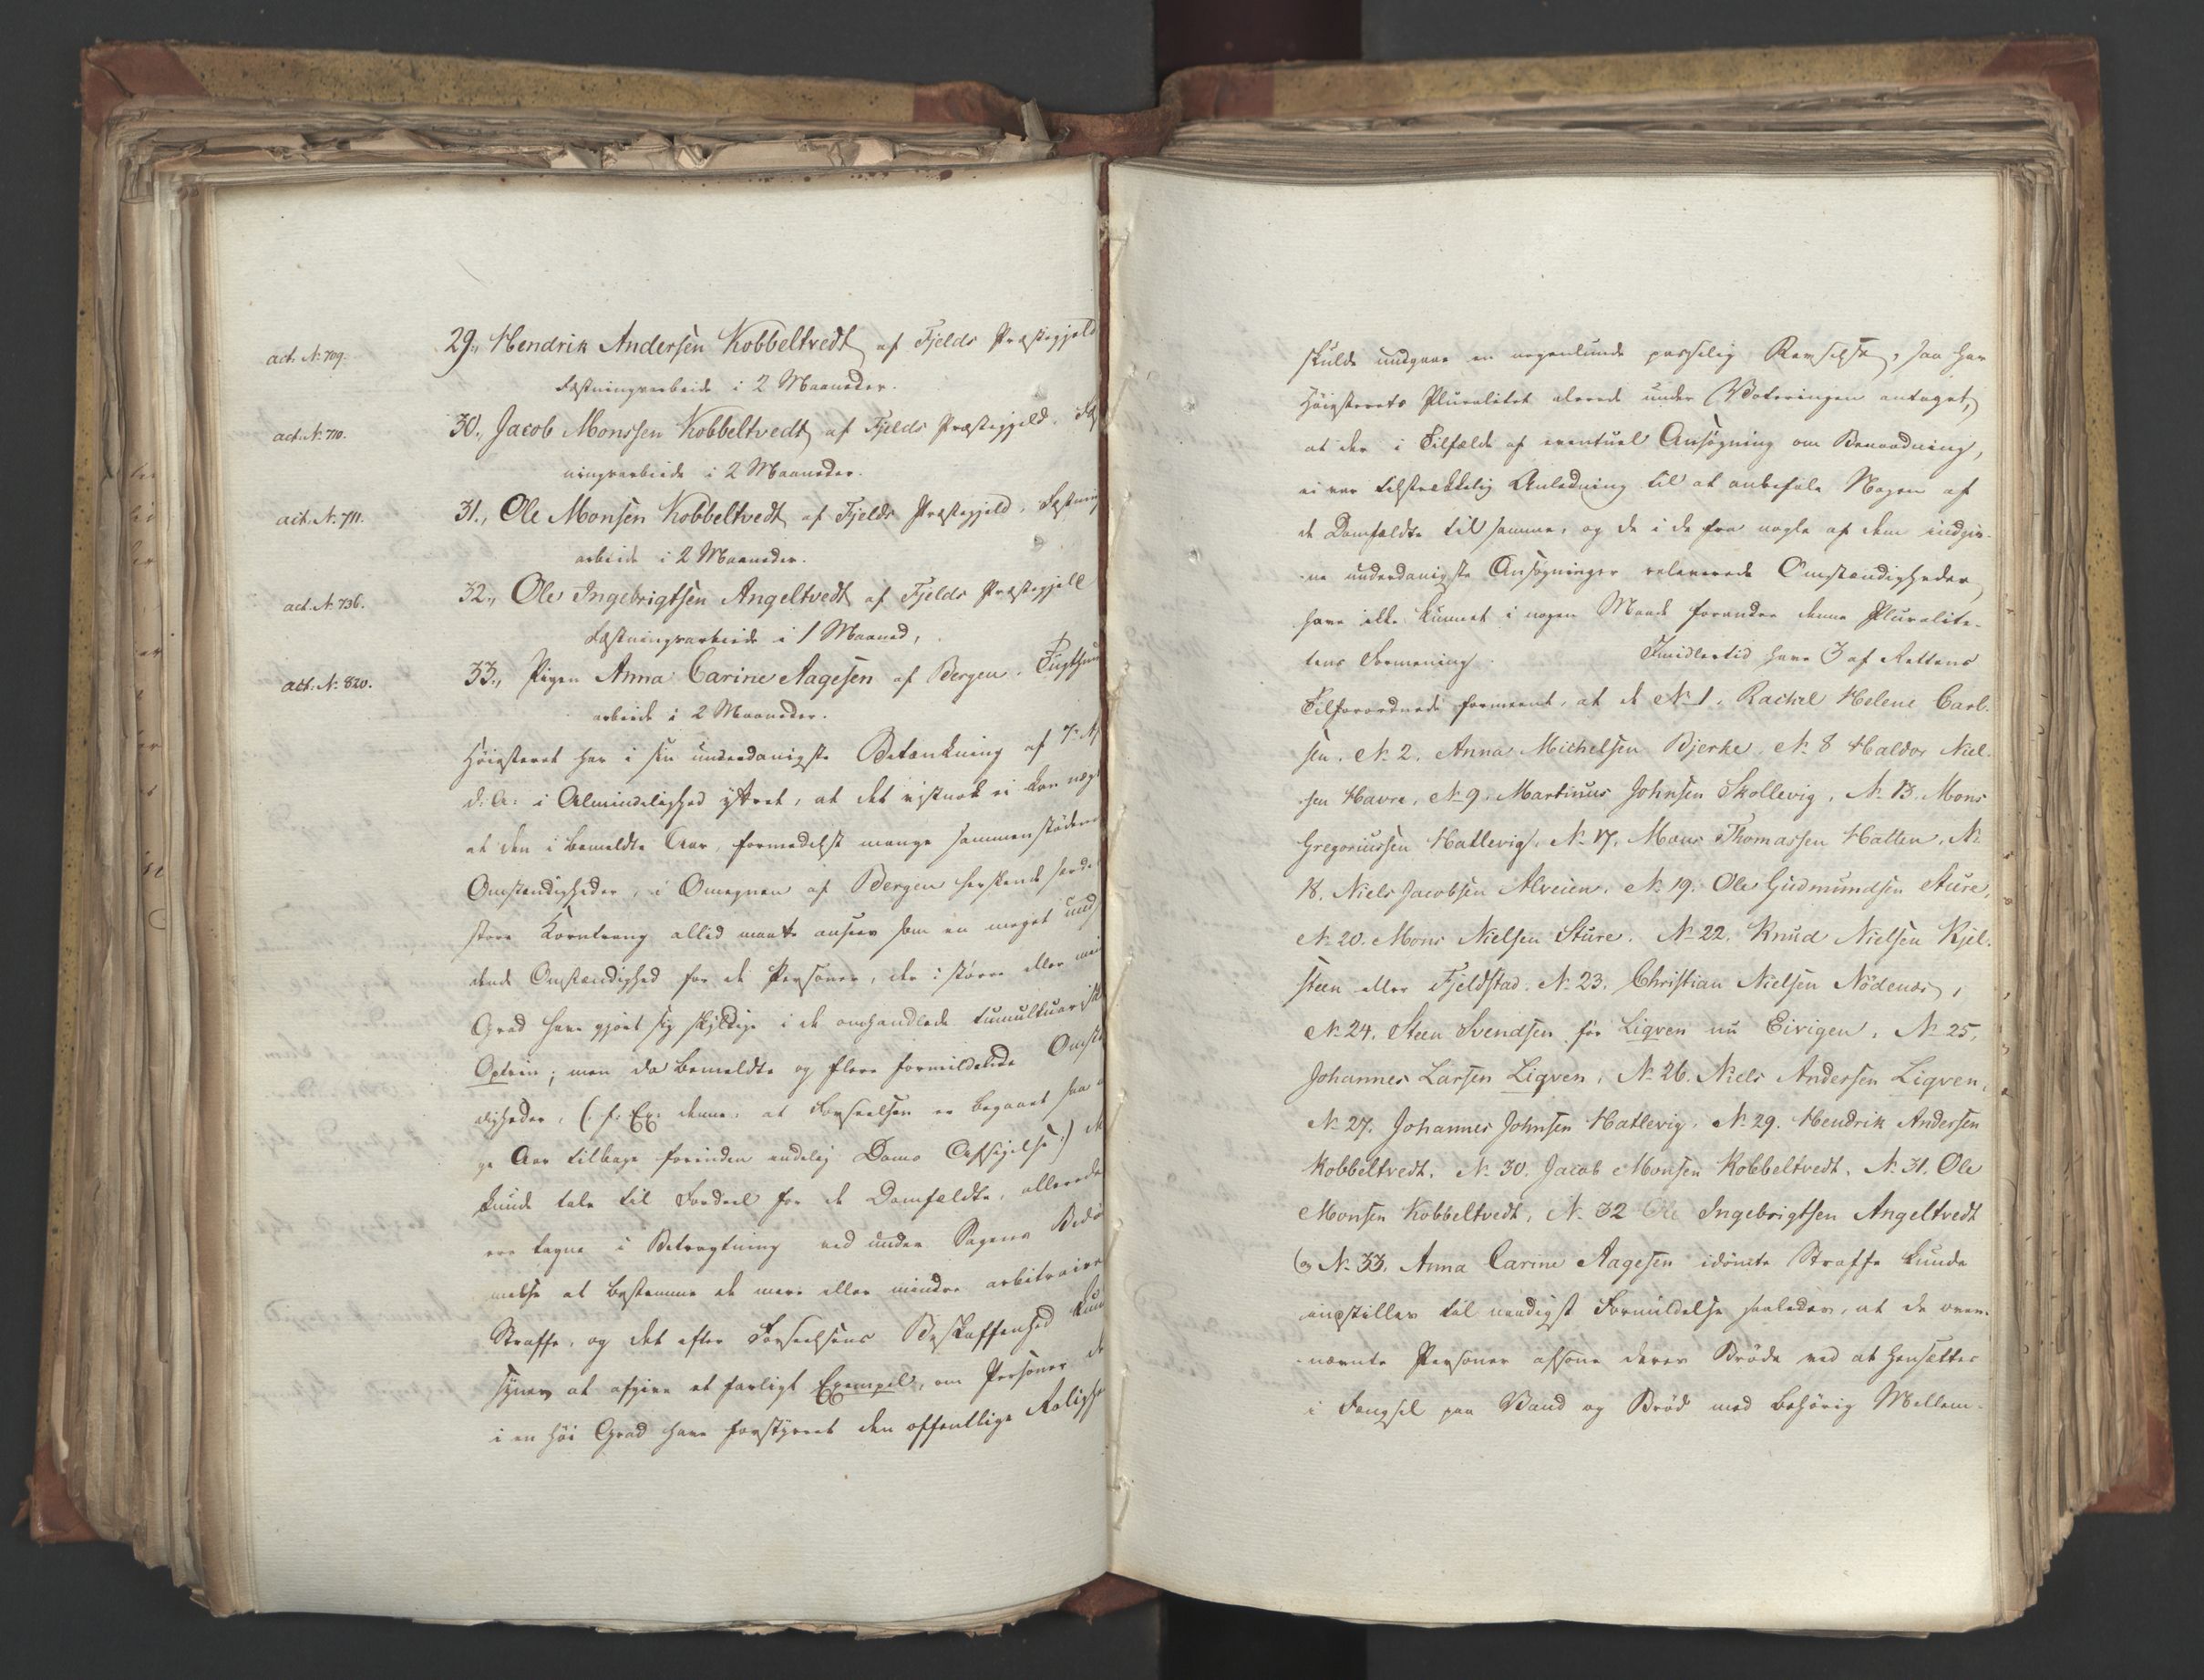 act. No 709.
29., Hendrik Andersen Kobbeltvedt af Fjelds Præstegjeld
Fæstningsarbeide i 2 Maaneder.
act. No 710.
30., Jacob Monssen Kobbeltvedt af Fjelds Præstegjeld. Fæst
ningsarbeide i 2 Maaneder.
act. No 711.
31., Ole Monsen Kobbeltvedt af Fjelds Præstegjeld, Fæstnings
arbeide i 2 Maaneder.
act. No 736.
32., Ole Ingebrigtsen Angeltvedt af Fjelds Præstegjell
Fæstningsarbeide i 1 Maaned,
act. No 820.
33., Pigen Anna Carine Aagesen af Bergen. Tugthuus
arbeide i 2 Maaneder.
Høiesteret har i sin underdanigste Betænkning af 7de
d: A: i Almindelighed yttret, at det vistnok ei kan nægt
at den i bemeldte Aar, formedelst mange sammenstødende
Omstændigheder, i Omegnen af Bergen herskende
store Korntrang altid maatte ansees som en meget und
dende Omstændighed for de Personer, der i større eller min
Grad have gjort sig skyldige i de omhandlede tumultuarisk
Optrin; men da bemeldte og flere formildende Omst
digheder, (: f: Ex: denne, at Forseelsen er begaaet saa
ge Aar tilbage forinden endelig Doms Afsigelse :)
kunde tale til Fordeel for de Domfældte, allerede
ere tagne i Betragtning ved under Sagens Bedøm
melse at bestemme de mere eller mindre arbitraire
Straffe, og det efter Forseelsens Beskaffenhed kun
synes at afgive et farligt Exempel, om Personer, de
i en høi Grad have forstyrret den offentlige Roligh
skulde undgaae en nogenlunde passelig Revselse, saa har
Høiesterets Pluralitet alerede under Voteringen antaget,
at der i Tilfælde af eventuel Ansøgning om Benaadning,
ei var tilstrækkelig Anledning til at anbefale Nogen af
de Domfældte til samme, og de i de fra nogle af dem indgiv-
ne underdanigste Ansøgninger releverede Omstændigheder
have ikke kunnet i nogen Maade forandre denne Pluralite-
tens Formening. Imidlertid have 3 af Rettens
Tilforordnede formeent, at de No 1, Rachel Helene Carl-
sen. No 2. Anna Michelsen Bjerke. No 8 Haldor Niel-
sen Havre, No 9. Martinus Johnsen Skollevig, No 13. Mons
Gregoriussen Hatlevig. No 17. Mons Thomassen Hatten, No
18. Niels Jacobsen Alveien. No 19. Ole Gudmundsen Sture,
No 20. Mons Nielsen Sture. No 22. Knud Nielsen Kjel-
steen eller Fjeldstad. No 23. Christian Nielsen Nödenæs,
No 24. Steen Svendsen før Liqven nu Eirigen, No 25,
Johannes Larsen Liqven, No 26. Niels Andersen Liqven,
No 27. Johannes Johnsen Hatlevig, No 29. Hendrik Andersen
Kobbeltvedt. No 30. Jacob Monsen Kobbeltvedt. No 31. Ole
Monsen Kobbeltvedt, No 32 Ole Ingebrigtsen Angeltvedt
og No 33. Anna Carine Aagesen idömte Straffe kunde
indstilles til naadigst Formildelse saaledes, at de oven-
nævnte Personer afsone deres Brøde ved at hensættes
i Fængsel paa Vand og Brød med behørig Mellem-